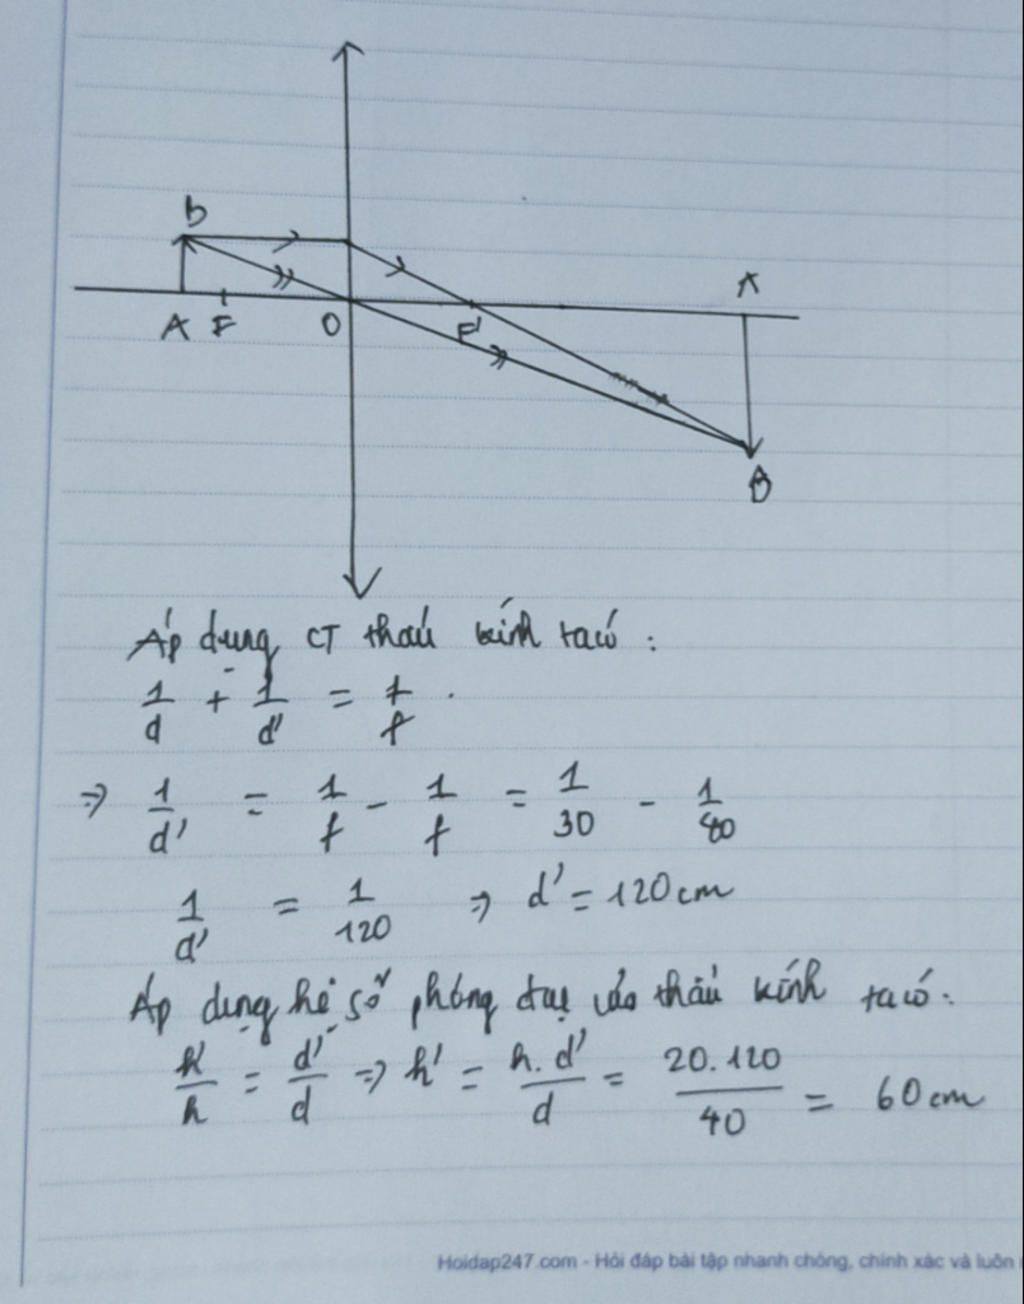 B
A F O F' A
B
Áp dụng CT thấu kính ta có :
1/d + 1/d' = 1/f .
=> 1/d' = 1/f - 1/f = 1/30 - 1/40
1/d' = 1/120 => d' = 120 cm
Áp dụng hệ số phóng đại vào thấu kính ta có:
h'/h = d'/d => h' = h.d'/d = 20.120/40 = 60 cm
Hoidap247.com - Hỏi đáp bài tập nhanh chóng, chính xác và luôn